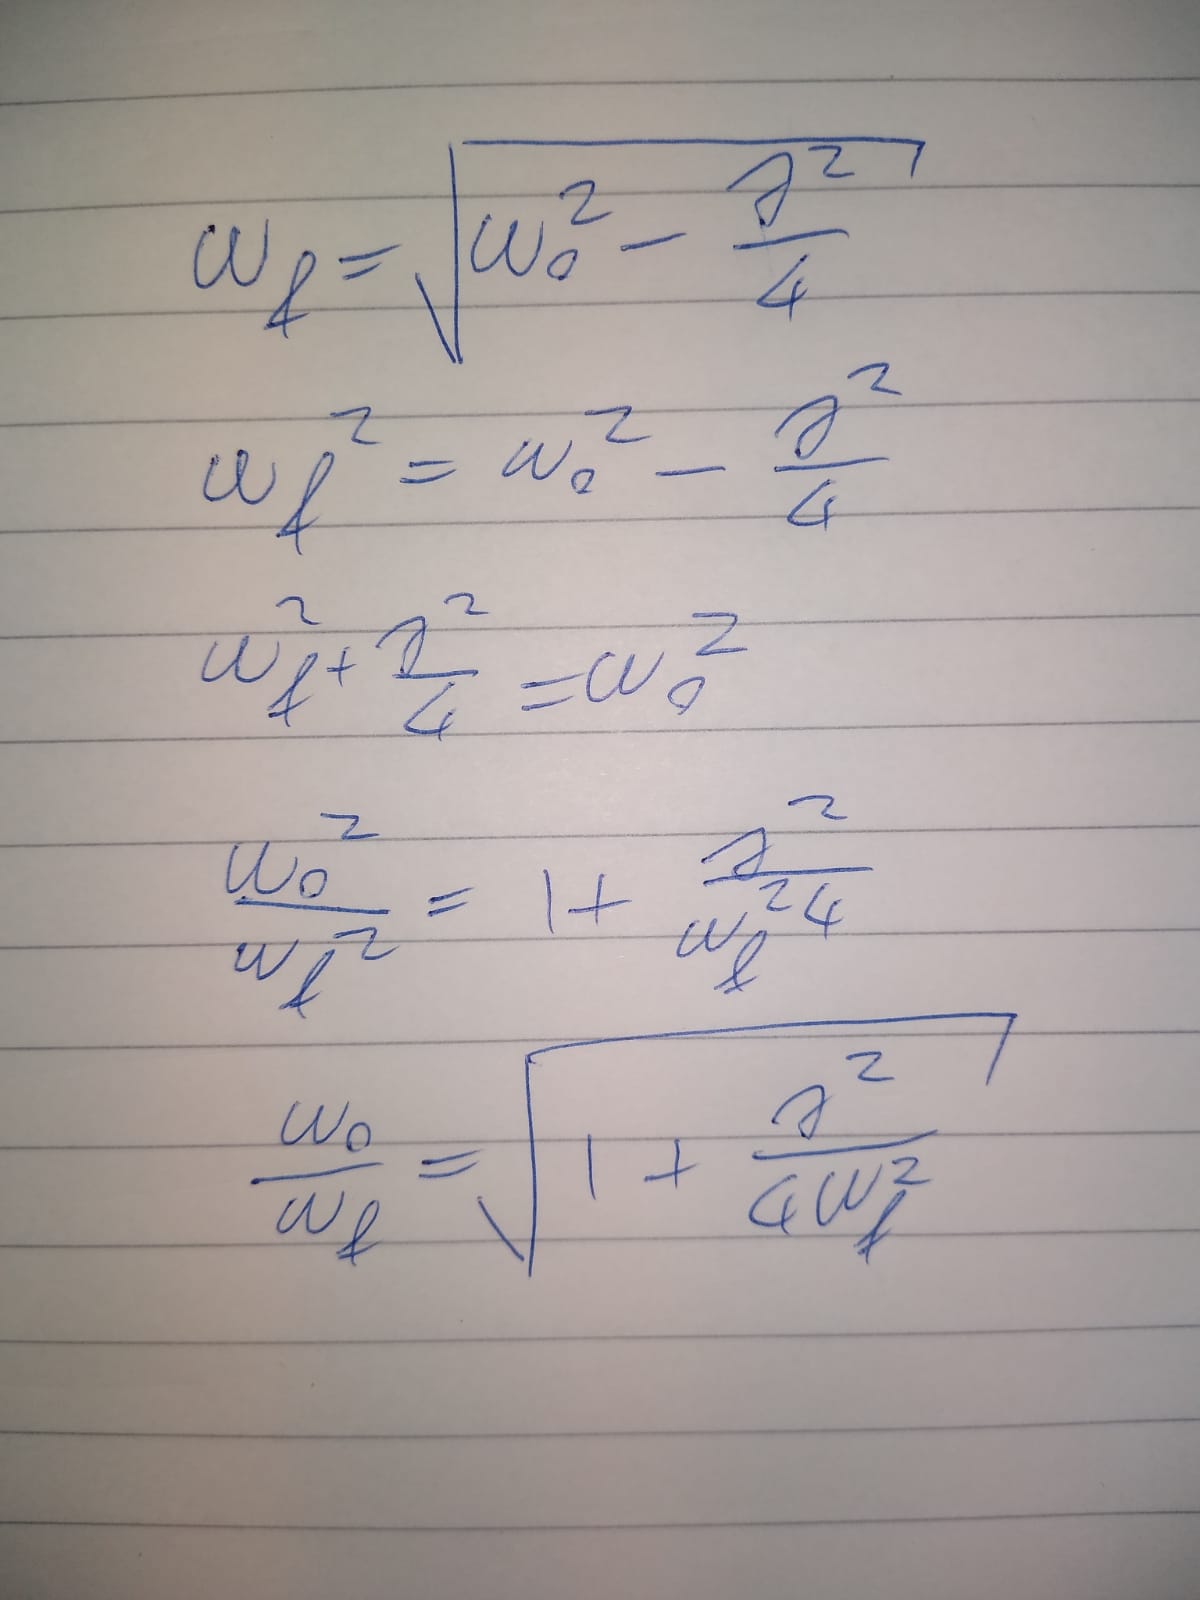 ω_f = √(ω₀² − γ²/4)
ω_f² = ω₀² − γ²/4
ω_f² + γ²/4 = ω₀²
ω₀²/ω_f² = 1 + γ²/(ω_f² 4)
ω₀/ω_f = √(1 + γ²/(4ω_f²))